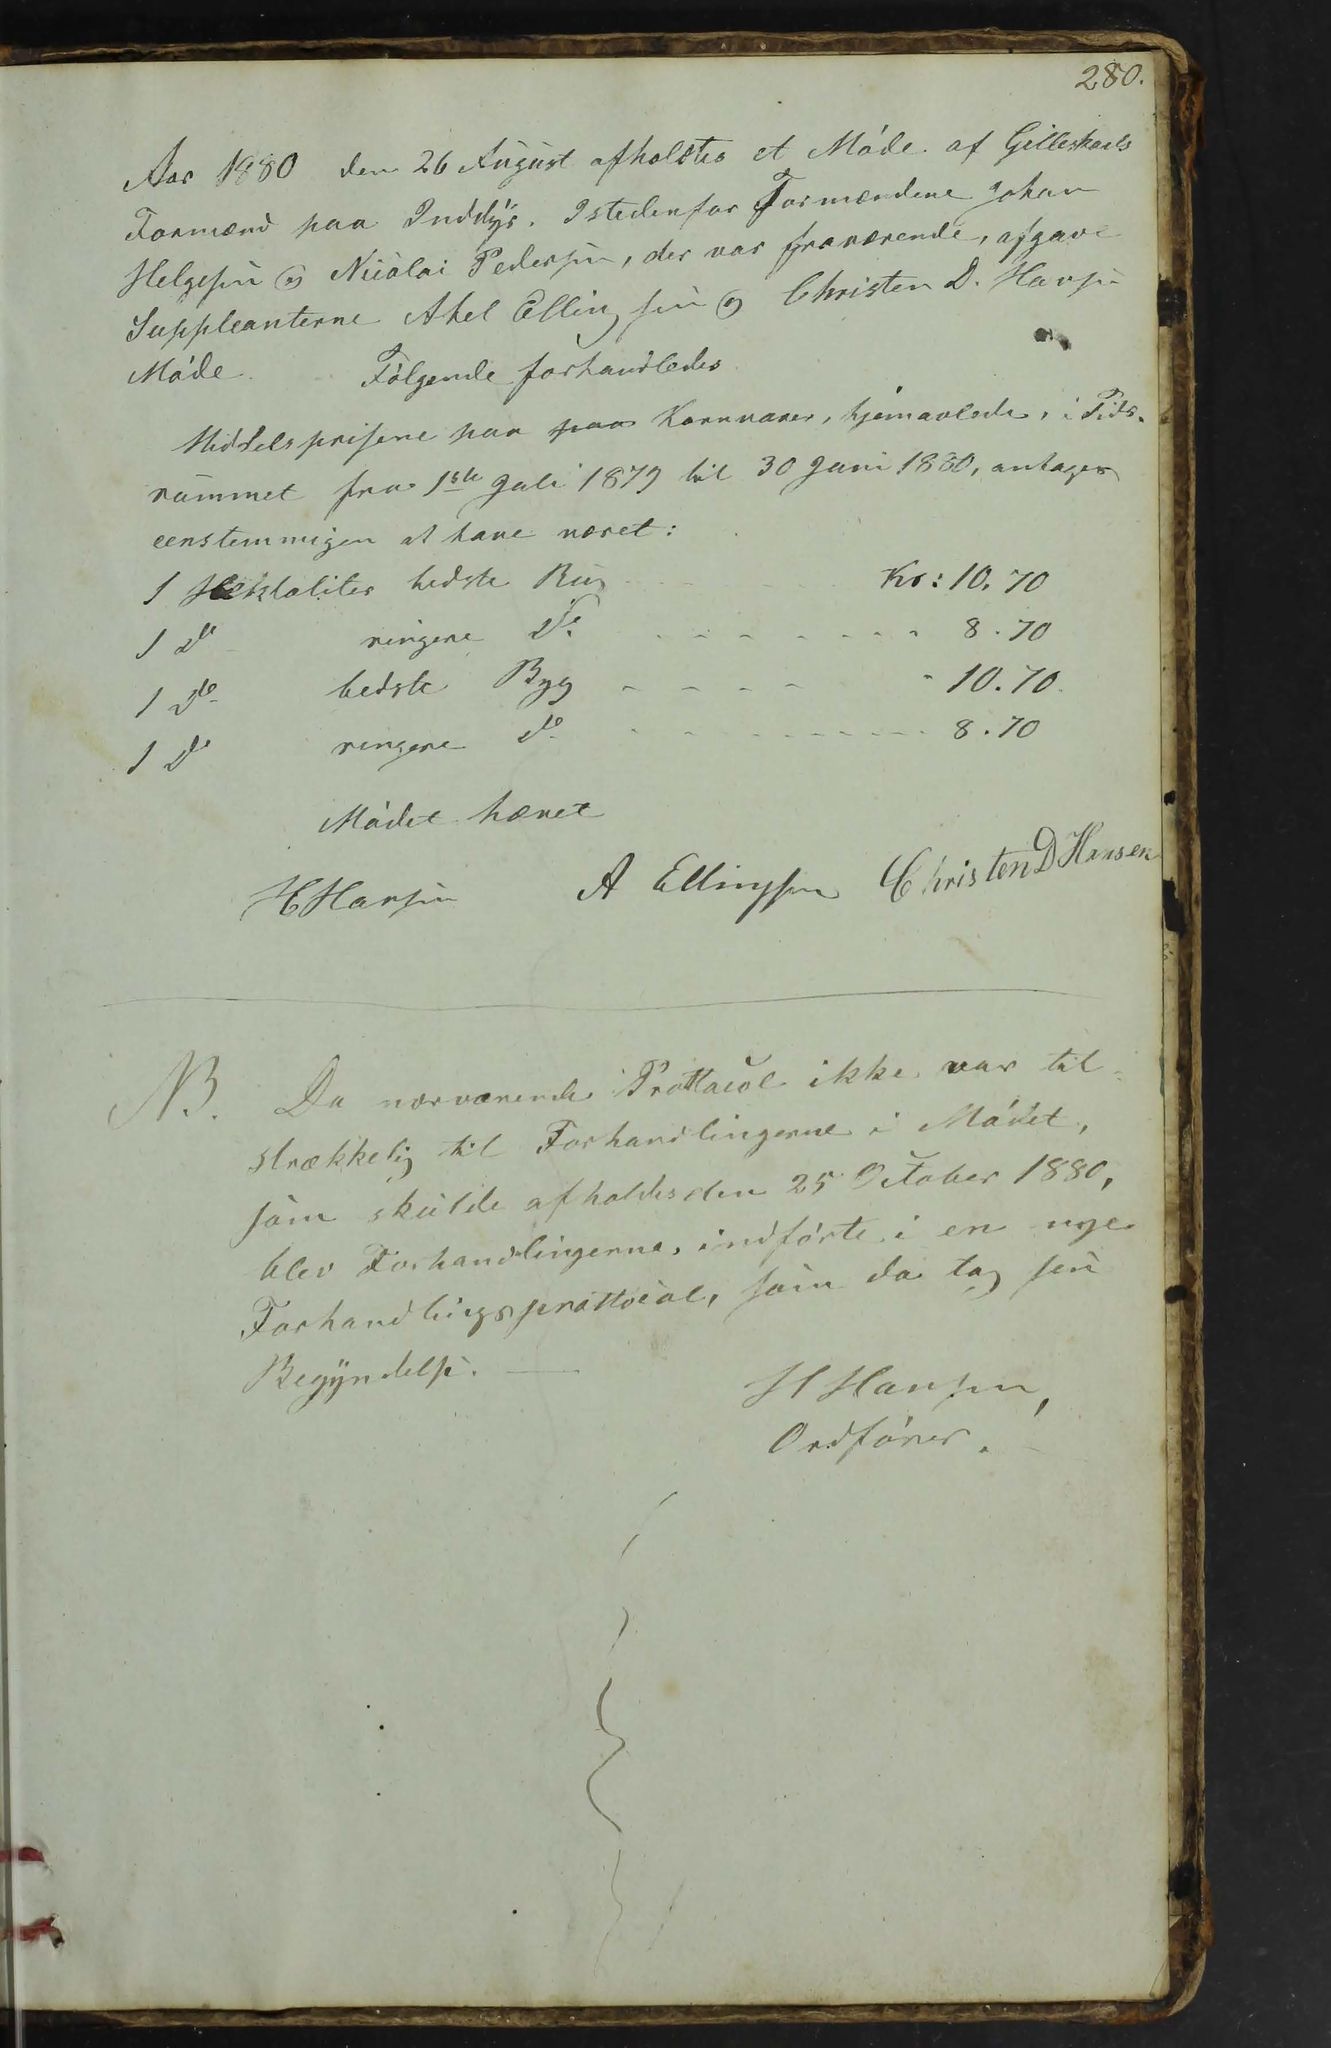 280.
Aar 1880 den 26 August afholdtes et Møde af Gilleskaals
Formænd paa Inddyr. Istedenfor Formændene Johan
Helgesen og Nicolai Pedersen, der var fraværende, afgave
Suppleanterne Axel Ellingsen og Christen D. Hansen
Møde. Følgende forhandledes
Middelsprisene paa paa Kornvarer, hjemavlede, i Tids-
rummet fra 1ste Juli 1879 til 30 Juni 1880, antages
eenstemmigen at have været:
1 Hektoliter bedste Rug Kr: 10.70
1 Do ringere Do. 8.70
1 Do bedste Byg 10.70
1 Do ringere Do 8.70
Mødet hævet
H Hansen A Ellingsen Christen D Hansen
NB. Da nærværende Prottocol ikke var til-
strækkelig til Forhandlingerne i Mødet,
som skulde afholdes den 25 October 1880,
blev Forhandlingerne, indførte i en nye
Forhandlingsprottocol, som da tog sin
Begyndelse.
H Hansen,
Ordfører.